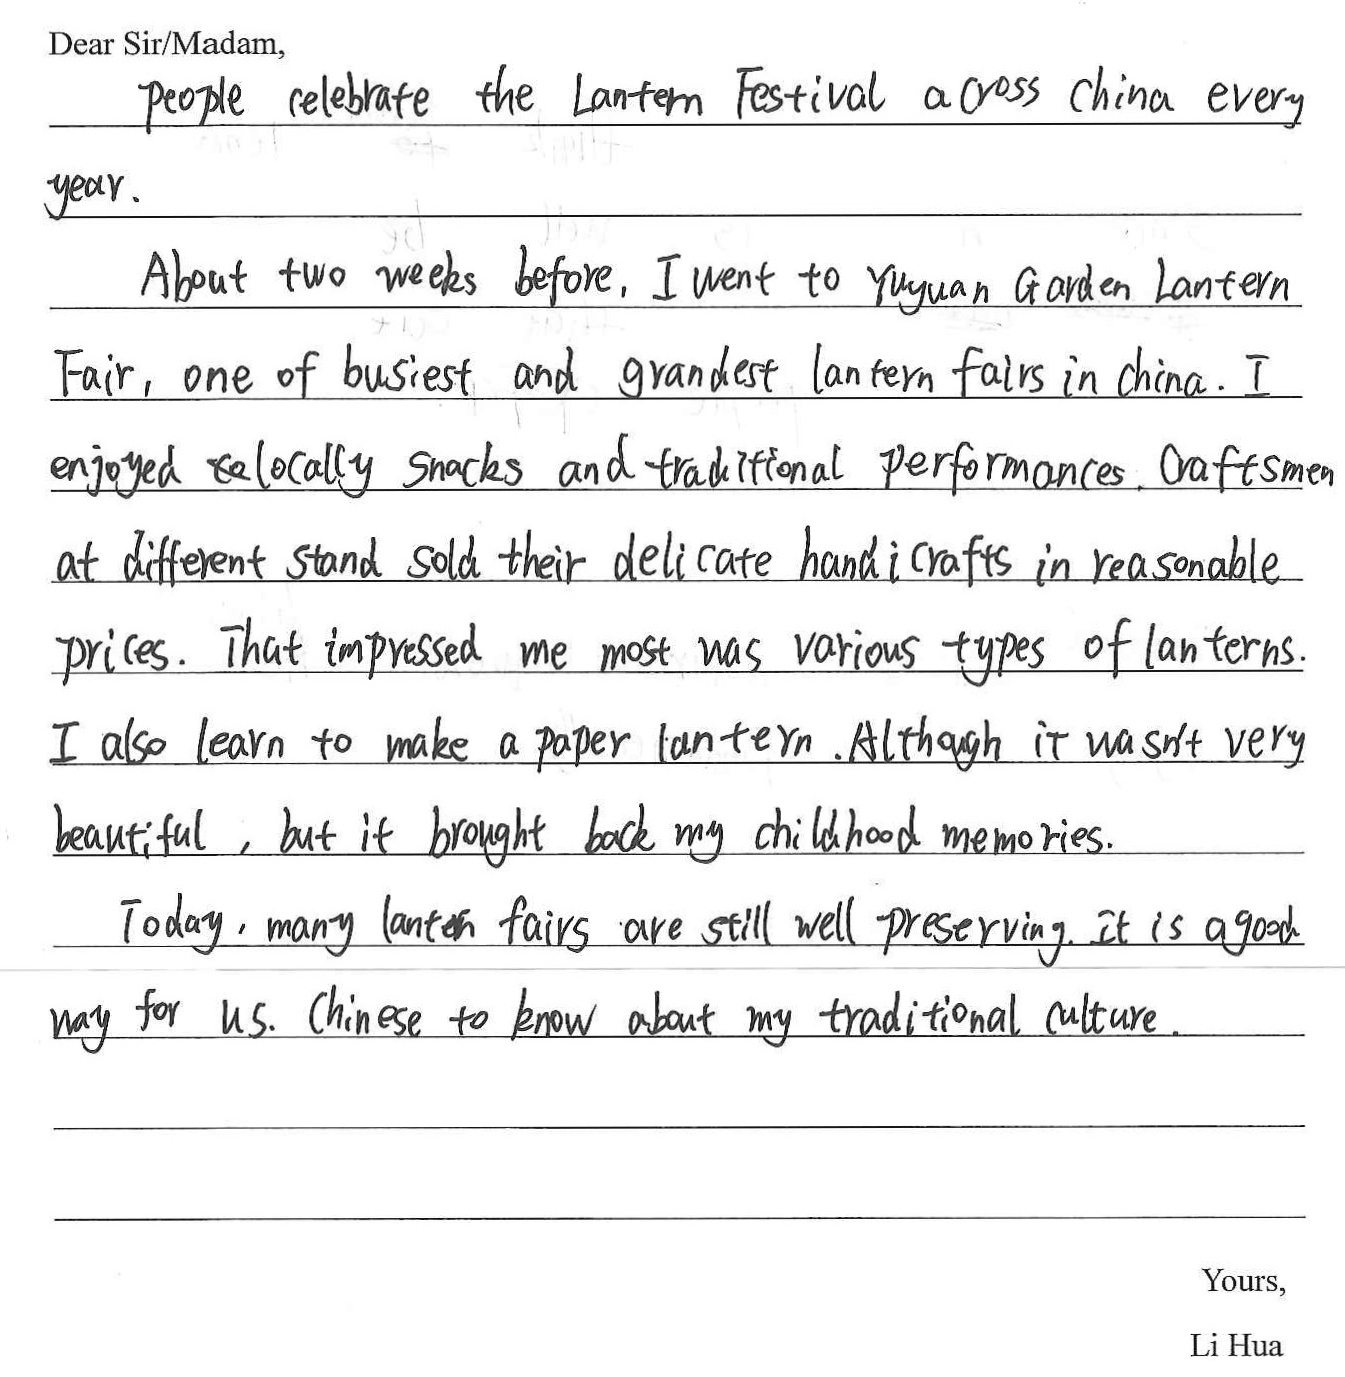 Dear Sir/Madam,
people celebrate the Lantern Festival across china every
year.
About two weeks before, I went to Yuyuan Garden Lantern
Fair, one of busiest and grandest lantern fairs in china. I
enjoyed locally snacks and traditional performances. Craftsmen
at different stand sold their delicate handicrafts in reasonable
prices. That impressed me most was various types of lanterns.
I also learn to make a paper lantern. Although it wasn't very
beautiful, but it brought back my childhood memories.
Today, many lantern fairs are still well preserving. It is a good
way for us. Chinese to know about my traditional culture.
Yours,
Li Hua